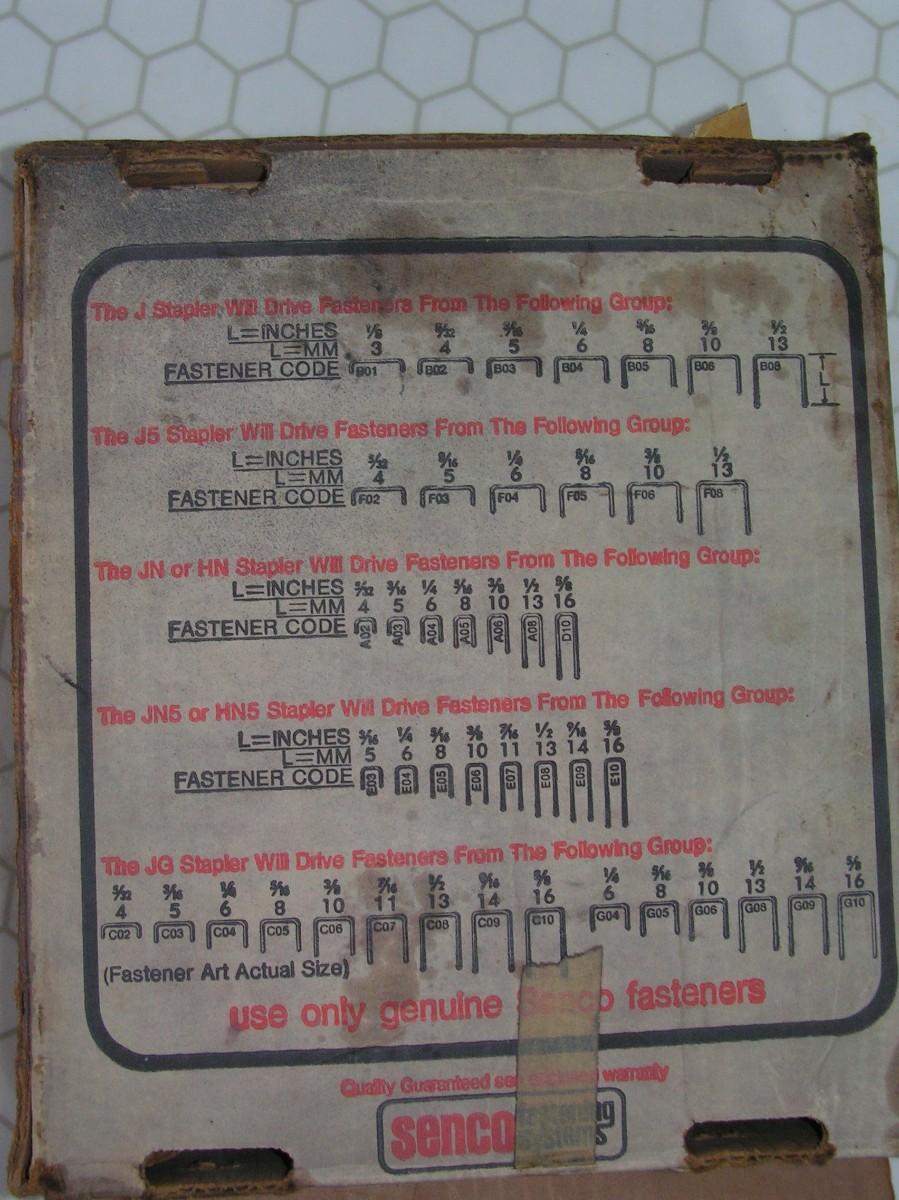 The J Stapler Will Drive Fasteners From The Following Group:
L=INCHES 1/8 5/32 3/16 1/4 5/16 3/8 1/2
L=MM 3 4 5 6 8 10 13
FASTENER CODE B01 B02 B03 B04 B05 B06 B08 L
The J5 Stapler Will Drive Fasteners From The Following Group:
L=INCHES 5/32 3/16 1/4 5/16 3/8 1/2
L=MM 4 5 6 8 10 13
FASTENER CODE F02 F03 F04 F05 F06 F08
The JN or HN Stapler Will Drive Fasteners From The Following Group:
L=INCHES 5/32 3/16 1/4 5/16 3/8 1/2 5/8
L=MM 4 5 6 8 10 13 16
FASTENER CODE A02 A03 A04 A05 A06 A08 D10
The JN5 or HN5 Stapler Will Drive Fasteners From The Following Group:
L=INCHES 3/16 1/4 5/16 3/8 7/16 1/2 9/16 5/8
L=MM 5 6 8 10 11 13 14 16
FASTENER CODE E03 E04 E05 E06 E07 E08 E09 E10
The JG Stapler Will Drive Fasteners From The Following Group:
5/32 3/16 1/4 5/16 3/8 7/16 1/2 9/16 5/8 1/4 5/16 3/8 1/2 9/16 5/8
4 5 6 8 10 11 13 14 16 6 8 10 13 14 16
C02 C03 C04 C05 C06 C07 C08 C09 C10 G04 G05 G06 G08 G09 G10
(Fastener Art Actual Size)
use only genuine Senco fasteners
Quality Guaranteed see enclosed warranty
senco fastening
systems